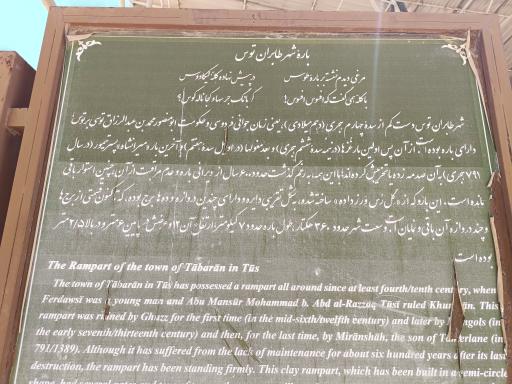 بارهٔ شهر طابران توس
مرغی دیدم نشسته بر بارهٔ طوس در پیش نهاده کلهٔ کیکاووس
با کله همی گفت که افسوس افسوس! کو بانگ جرسها و کجا نالهٔ کوس؟
شهر طابران توس دست کم از سدهٔ چهارم هجری (دهم میلادی)، یعنی زمان جوانی فردوسی و حکومت ابومنصور محمد بن عبدالرزاق توسی بر توس
دارای باره بوده است. از آن پس اولین بار غزها (در نیمه سدهٔ ششم هجری) و بعد مغولها (در اوایل سدهٔ هفتم) و آخرین باره میرانشاه، پسر تیمور (در سال
۷۹۱ هجری) به آن صدمه زده یا تخریبش کرده‌اند؛ با این همه، به رغم گذشت حدود ۶۰۰ سال از ویرانی باره و عدم مراقبت از آن، همچنین استوار باقی
مانده است. این بارو که از گل رس (و رزداده) ساخته شده، به شکل تقریبی دایره و دارای چندین دروازه و ده‌ها برج بوده، که اکنون بعضی از برجها
و چند دروازه آن باقی و نمایان است. وسعت شهر حدود ۳۶۰ هکتار، طول باره حدود ۷ کیلومتر، ارتفاع آن ۱۲ و عرضش در پایین ۶ متر و در بالا ۲/۵ متر
بوده است
The Rampart of the town of Tābarān in Tūs
The town of Tābarān in Tūs has possessed a rampart all around since at least fourth/tenth century, when
Ferdawsī was a young man and Abu Mansūr Mohammad b. Abd al-Razzaq Tūsī ruled Khurāsān. This
rampart was ruined by Ghuzz for the first time (in the mid-sixth/twelfth century) and later by Mongols (in
the early seventh/thirteenth century) and then, for the last time, by Mīrānshāh, the son of Tamerlane (in
791/1389). Although it has suffered from the lack of maintenance for about six hundred years after its last
destruction, the rampart has been standing firmly. This clay rampart, which has been built in a semi-circle
shape, had several gates and